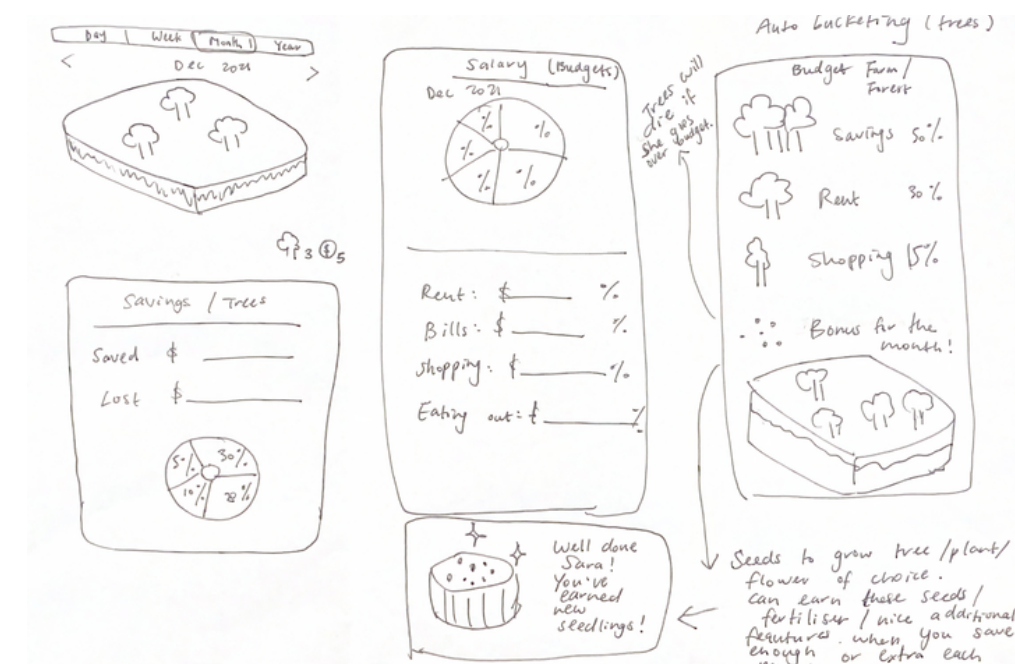 Day | Week | Month | Year
<
Dec 2021
>
3 $ 5
Savings / Trees
Saved $
Lost $
5%
30%
10%
28%
Salary (Budgets)
Dec 2021
%
%
%
%
%
Rent: $ %
Bills: $ %
Shopping: $ %
Eating out: $ %
Well done
Sara!
You've
earned
new
seedlings!
Trees will
die if
she goes
over budget.
Auto bucketing (trees)
Budget Farm/
Forest
Savings 50%
Rent 30%
Shopping 15%
Bonus for the
month!
Seeds to grow tree/plant/
flower of choice.
can earn these seeds/
fertiliser / nice additional
feautures. when you save
enough or extra each